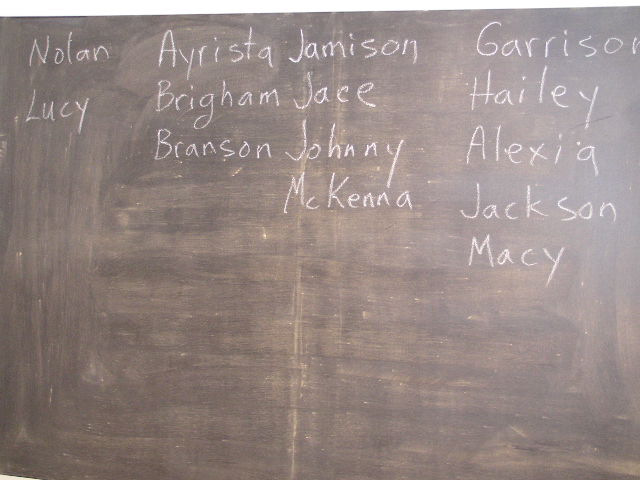 Nolan Ayrista Jamison Garrison
Lucy Brigham Jace Hailey
Branson Johnny Alexia
McKenna Jackson
Macy